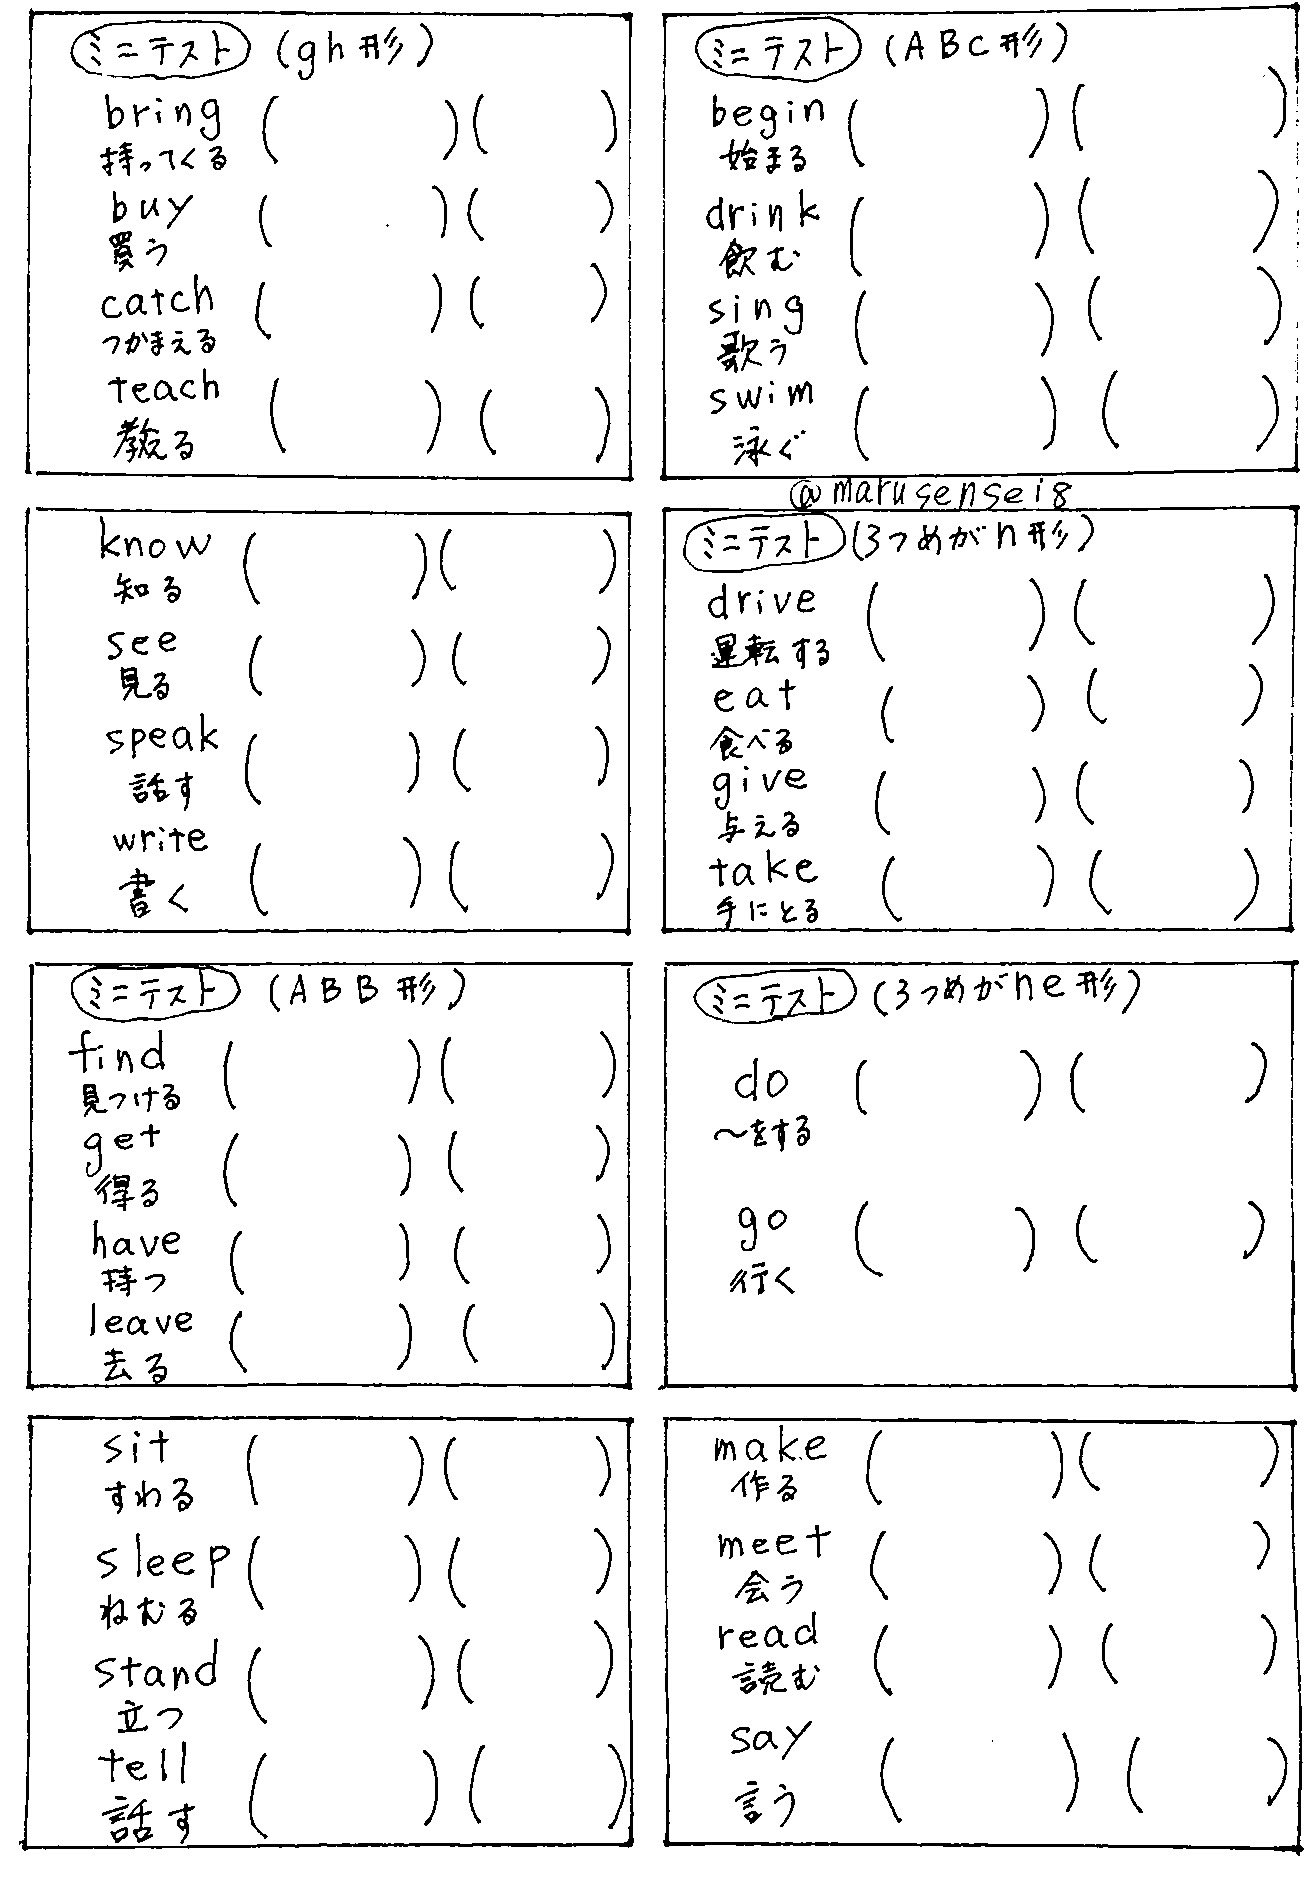 ミニテスト (gh形)
bring ( ) ( )
持ってくる
buy ( ) ( )
買う
catch ( ) ( )
つかまえる
teach ( ) ( )
教える
ミニテスト (ABC形)
begin ( ) ( )
始まる
drink ( ) ( )
飲む
sing ( ) ( )
歌う
swim ( ) ( )
泳ぐ
@marusensei8
know ( ) ( )
知る
see ( ) ( )
見る
speak ( ) ( )
話す
write ( ) ( )
書く
ミニテスト (3つめがn形)
drive ( ) ( )
運転する
eat ( ) ( )
食べる
give ( ) ( )
与える
take ( ) ( )
手にとる
ミニテスト (ABB形)
find ( ) ( )
見つける
get ( ) ( )
得る
have ( ) ( )
持つ
leave ( ) ( )
去る
ミニテスト (3つめがne形)
do ( ) ( )
〜をする
go ( ) ( )
行く
sit ( ) ( )
すわる
sleep ( ) ( )
ねむる
stand ( ) ( )
立つ
tell ( ) ( )
話す
make ( ) ( )
作る
meet ( ) ( )
会う
read ( ) ( )
読む
say ( ) ( )
言う